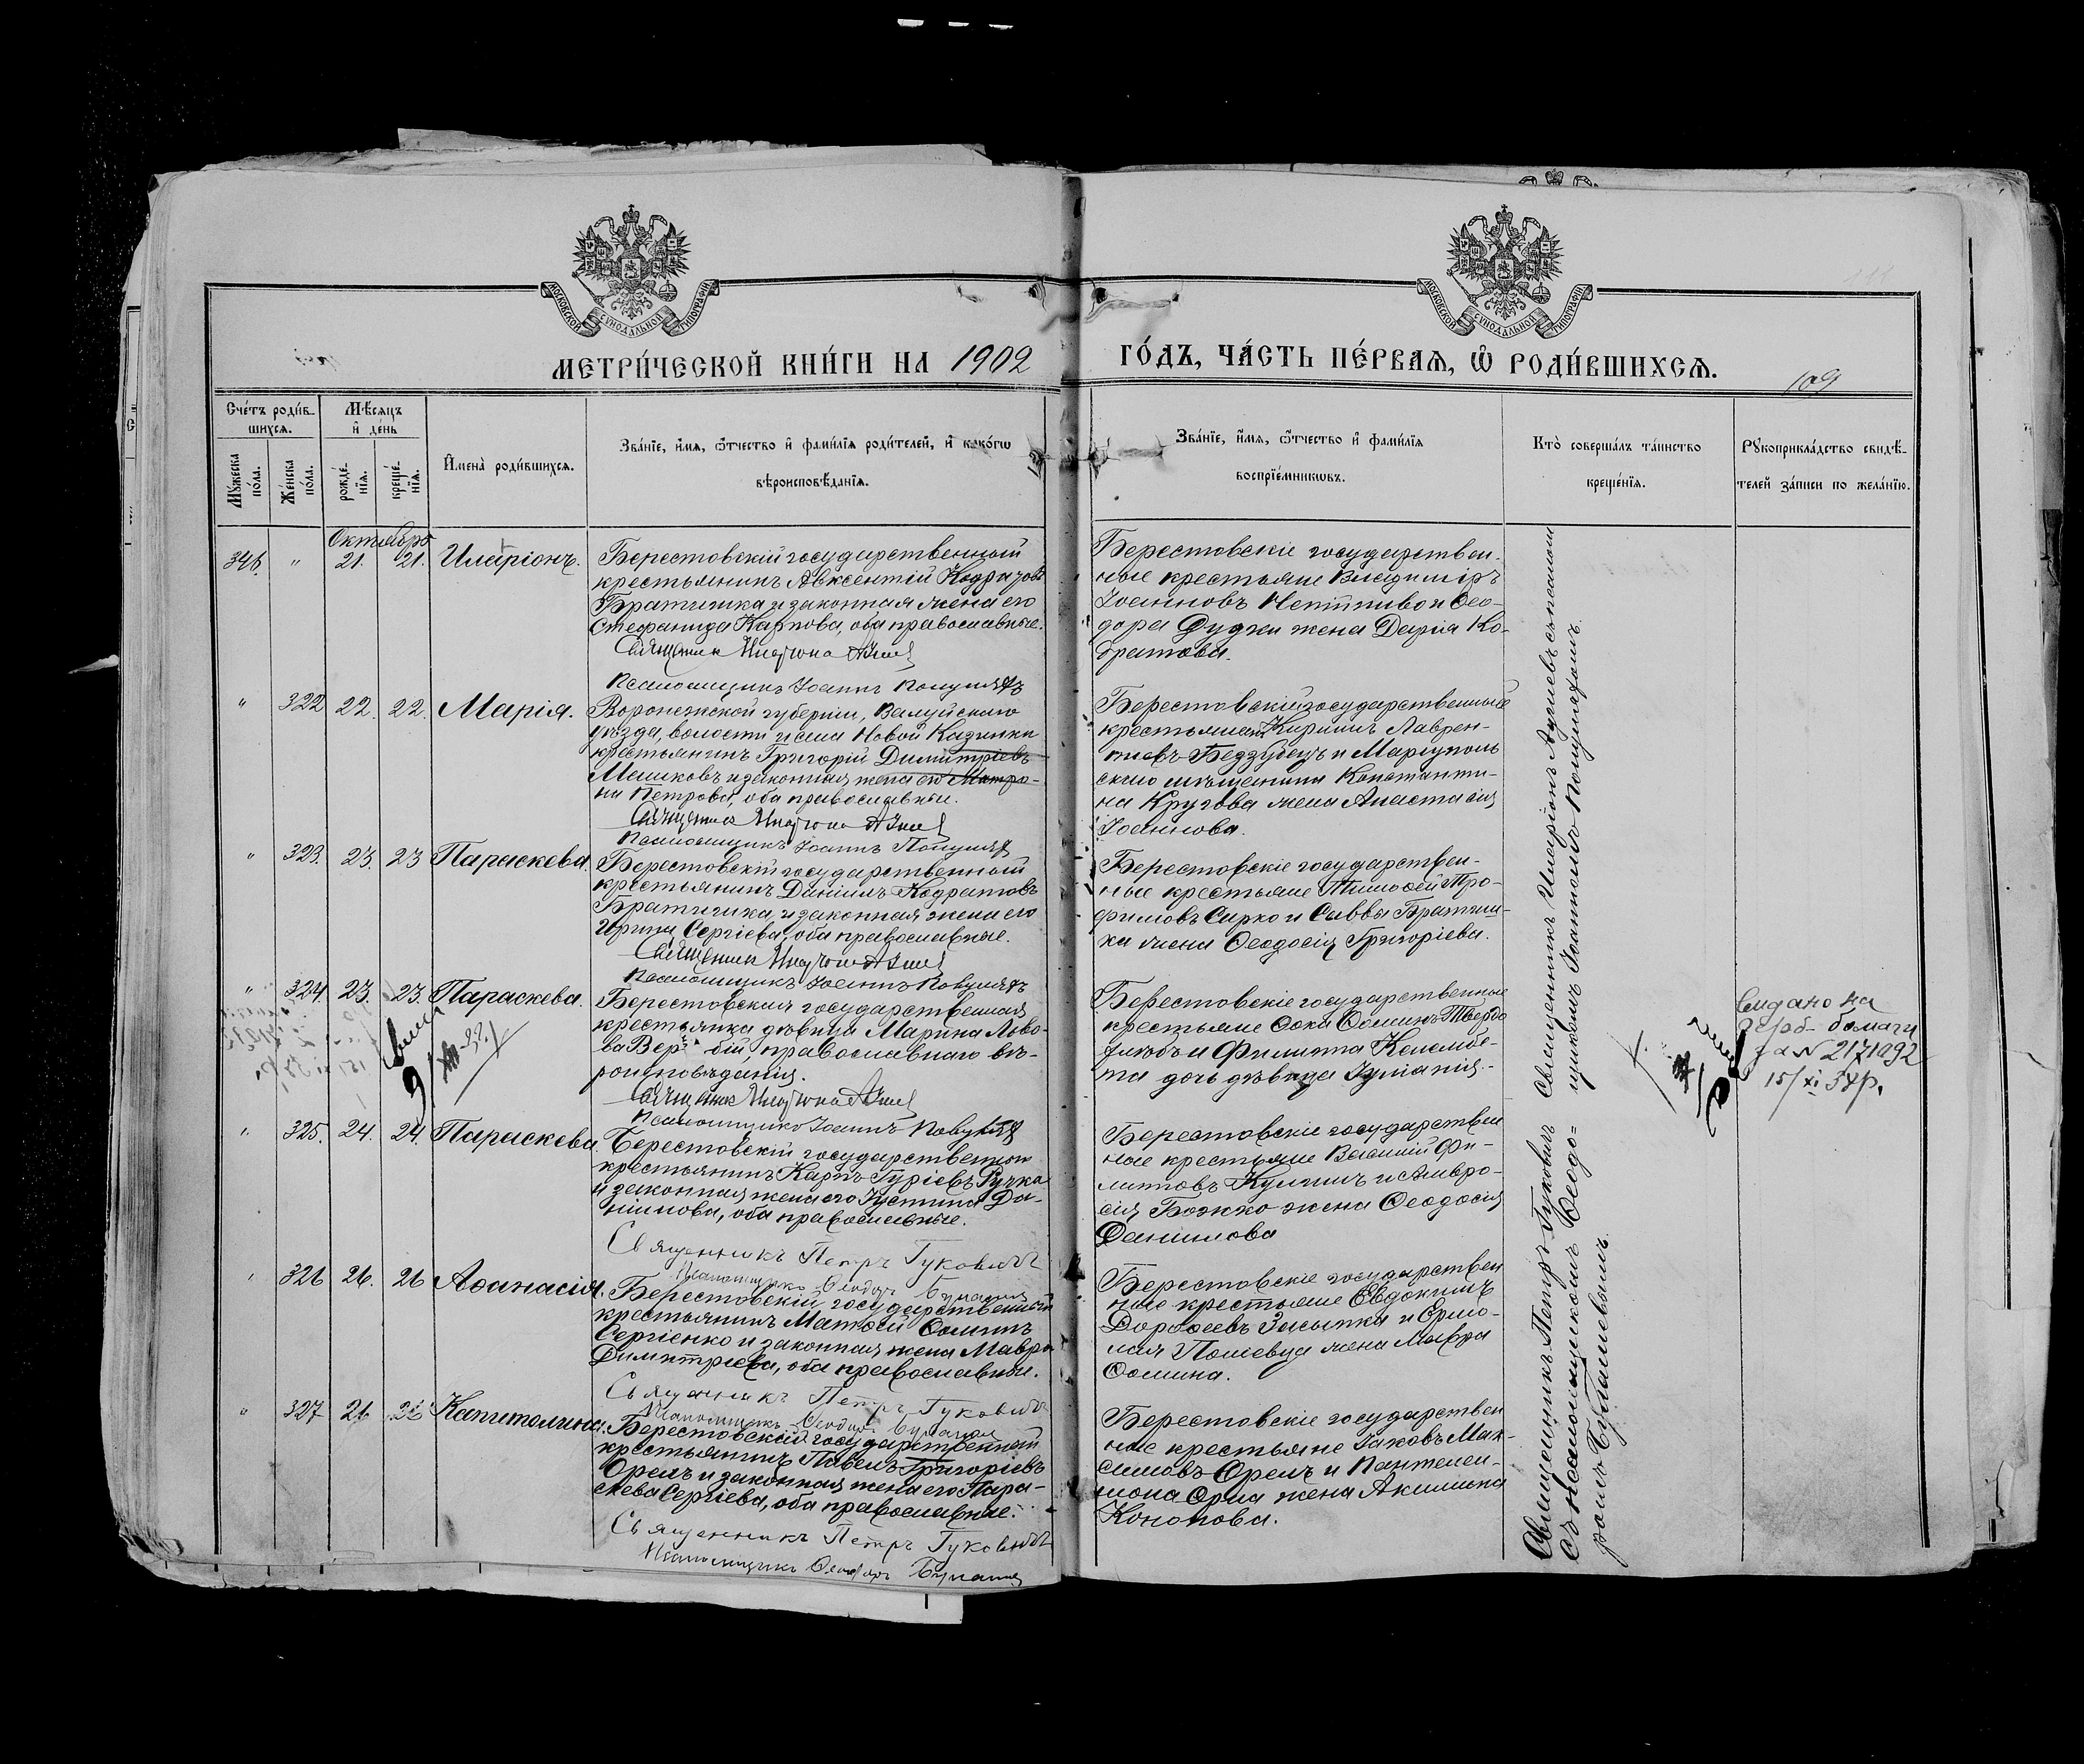 МОСКОВСКОЙ СѴНОДАЛЬНОЙ ТИПОГРАФІИ
МОСКОВСКОЙ СѴНОДАЛЬНОЙ ТИПОГРАФІИ
МЕТРИ́ЧЕСКОЙ КНИ́ГИ НА 1902
ГО́ДЪ, ЧА́СТЬ ПЕ́РВАѦ, Ѽ РОДИ́ВШИХСѦ.
109
Сче́тъ роди́в-
шихсѧ.
Мѣ́сѧцъ
и҆ де́нь
Мꙋ́жеска
по́ла.
Же́нска
по́ла.
рожде́-
нїѧ.
креще́-
нїѧ.
И҆мена̀ роди́вшихсѧ.
Зва́нїе, и҆́мѧ, ѻ҆́тчество и҆ фами́лїѧ роди́телей, и҆ како́гѡ
вѣроисповѣ́данїѧ.
Зва́нїе, и҆́мѧ, ѻ҆́тчество и҆ фами́лїѧ
воспрїе́мникѡвъ.
Кто̀ соверша́лъ та́инство
креще́нїѧ.
Рꙋкоприкла́дство свидѣ́-
телей за́писи по жела́нїю.
Октябрь
346. " 21. 21. Иларіонъ.
Берестовскій государственный
крестьянинъ Авксентій Кодратовъ
Братишка и законная жена его
Стефанида Карпова, оба православные.
Священник Иларіонъ
Псаломщикъ Іоаннъ
Берестовскіе государствен-
ные крестьяне Владиміръ
Іоанновъ и Ѳео-
дора Дудки жена Дарія Ко-
дратова.
" 322 22. 22. Марія.
Воронежской губерніи, Валуйскаго
уѣзда, волости и села Новой Казинки
крестьянинъ Григорій Димитріевъ
Мешковъ и законная жена его Матро-
на Петрова, оба православные.
Священник Иларіонъ
Псаломщикъ Іоаннъ
Берестовскій государственный
крестьянинъ Кириллъ Лаврен-
тіевъ Беззубецъ и Маріуполь
скаго мѣщанина Константи-
на Кругова жена Анастасія
Іоаннова.
" 323. 23. 23 Параскева.
Берестовскій государственный
крестьянинъ Даніилъ Кодратовъ
Братишка, и законная жена его
Ирина Сергіева, оба православные.
Священник Иларіонъ
Псаломщикъ Іоаннъ
Берестовскіе государствен-
ные крестьяне Тимоѳей Тро-
фимовъ Сирко и Саввы Братиш-
ки жена Ѳеодосія Григоріева.
" 324. 23. 23. Параскева.
Берестовская государственная
крестьянка дѣвица Марина Льво-
ва православнаго вѣ-
роисповѣданія.
Священник Иларіонъ
Псаломщикъ Іоаннъ
Берестовскіе государственные
крестьяне Ѳока Ѳоминъ Твердо
хлѣбъ и Филиппа
та дочь дѣвица Іуліанія.
Видано на
герб. бомаги
за № 2171092
15/XI 34 р.
" 325. 24. 24. Параскева.
Берестовскій государственный
крестьянинъ Карпъ Гуріевъ Ручка
и законная жена его Іустина Да-
ніилова, оба православные.
Священникъ Петръ Гуковичъ
Псаломщикъ Ѳеодоръ
Берестовскіе государствен
ные крестьяне Василій Фи-
липповъ и Амвро-
сія Божко жена Ѳеодосія
Даніилова
" 326 26. 26 Аѳанасія.
Берестовскій государственный
крестьянинъ Матѳей Ѳоминъ
Сергіенко и законная жена Мавра
Димитріева, оба православные.
Священникъ Петръ Гуковичъ
Псаломщикъ Ѳеодоръ
Берестовскіе государствен
ные крестьяне Евдокимъ
Дороѳеевъ Засыпка и Ермо-
лая жена Мавра
Ѳомина.
" 327 26 26 Капитолина.
Берестовскій государственный
крестьянинъ Павелъ Григоріевъ
Орелъ и законная жена его Пара-
скева Сергіева, оба православные.
Священникъ Петръ Гуковичъ
Псаломщикъ Ѳеодоръ
Берестовскіе государствен
ные крестьяне Іаковъ Мак-
симовъ Орелъ и Пантелеи-
мона Орла жена Акилина
Кононова.
Священникъ Иларіонъ съ псалом
щикомъ Іоанномъ
Священникъ Петръ Гуковичъ
съ псаломщикомъ Ѳеодо-
ромъ